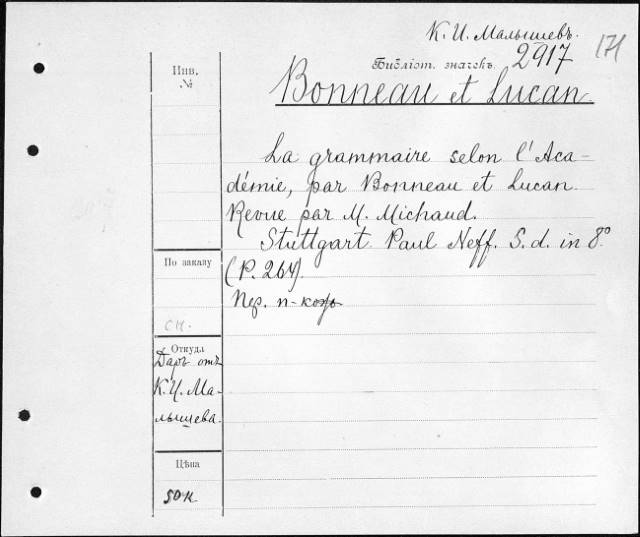 К. И. Малышевъ.
171
Библіот. значекъ.
2917
Bonneau et Lucan.
Инв.
№
La grammaire selon l'Aca-
démie, par Bonneau et Lucan.
Revue par M. Michaud.
Stuttgart. Paul Neff. S. d. in 8°.
(P. 264).
Пер. п-кож
По заказу
сп.
Откуда
Даръ отъ
К. И. Ма-
лышева.
Цѣна
50 к